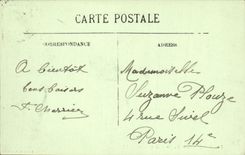 CARTE POSTALE
CORRESPONDANCE
ADRESSE
A bientôt
bons baisers
F. Charrier
Mademoiselle
Suzanne Plouze
4 rue Sivel
Paris 14e